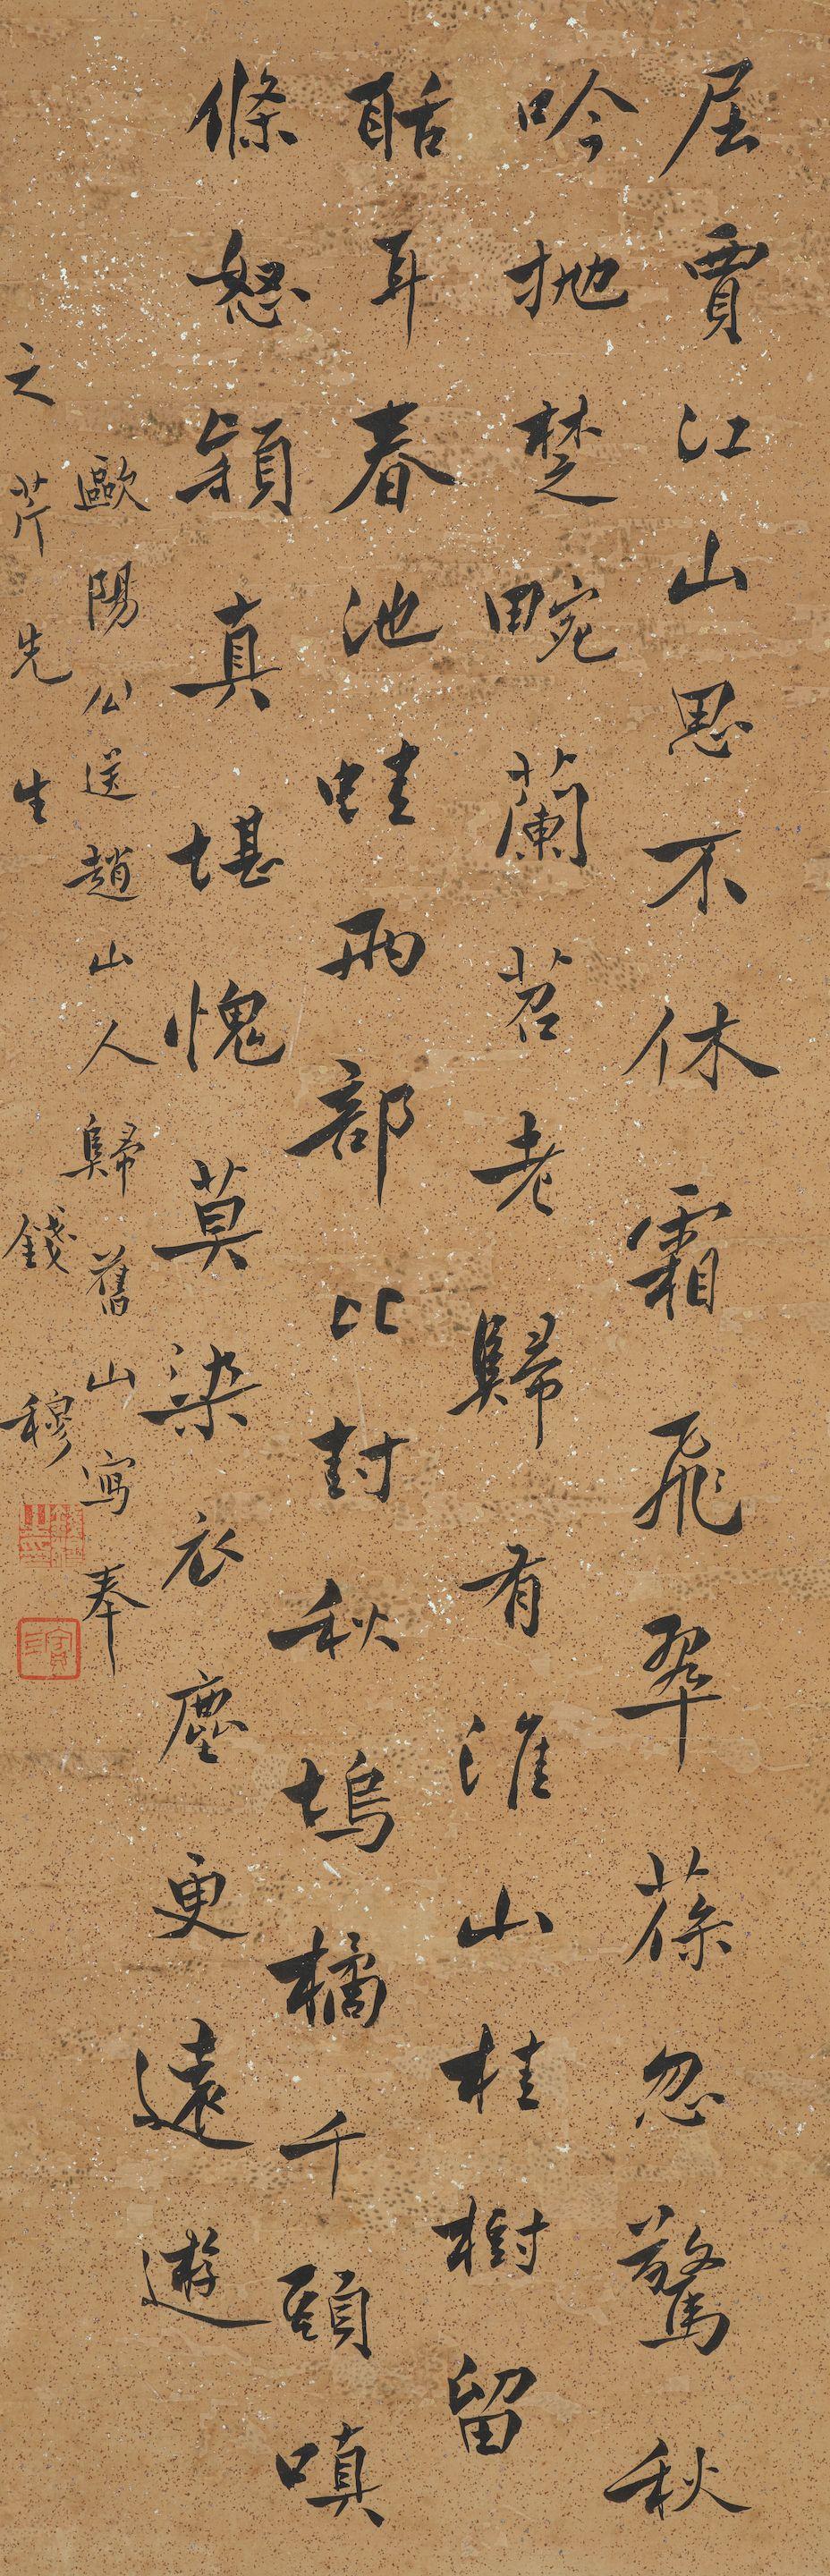 屈賈江山思不休霜飛翠葆忽驚秋
吟抛楚畹蘭苕老歸有淮山桂樹留
聒耳春池蛙兩部比封秋塢橘千頭嗔
條怒潁真堪愧莫染衣塵更遠遊
歐陽公送趙山人歸舊山寫奉
之芹先生
錢穆